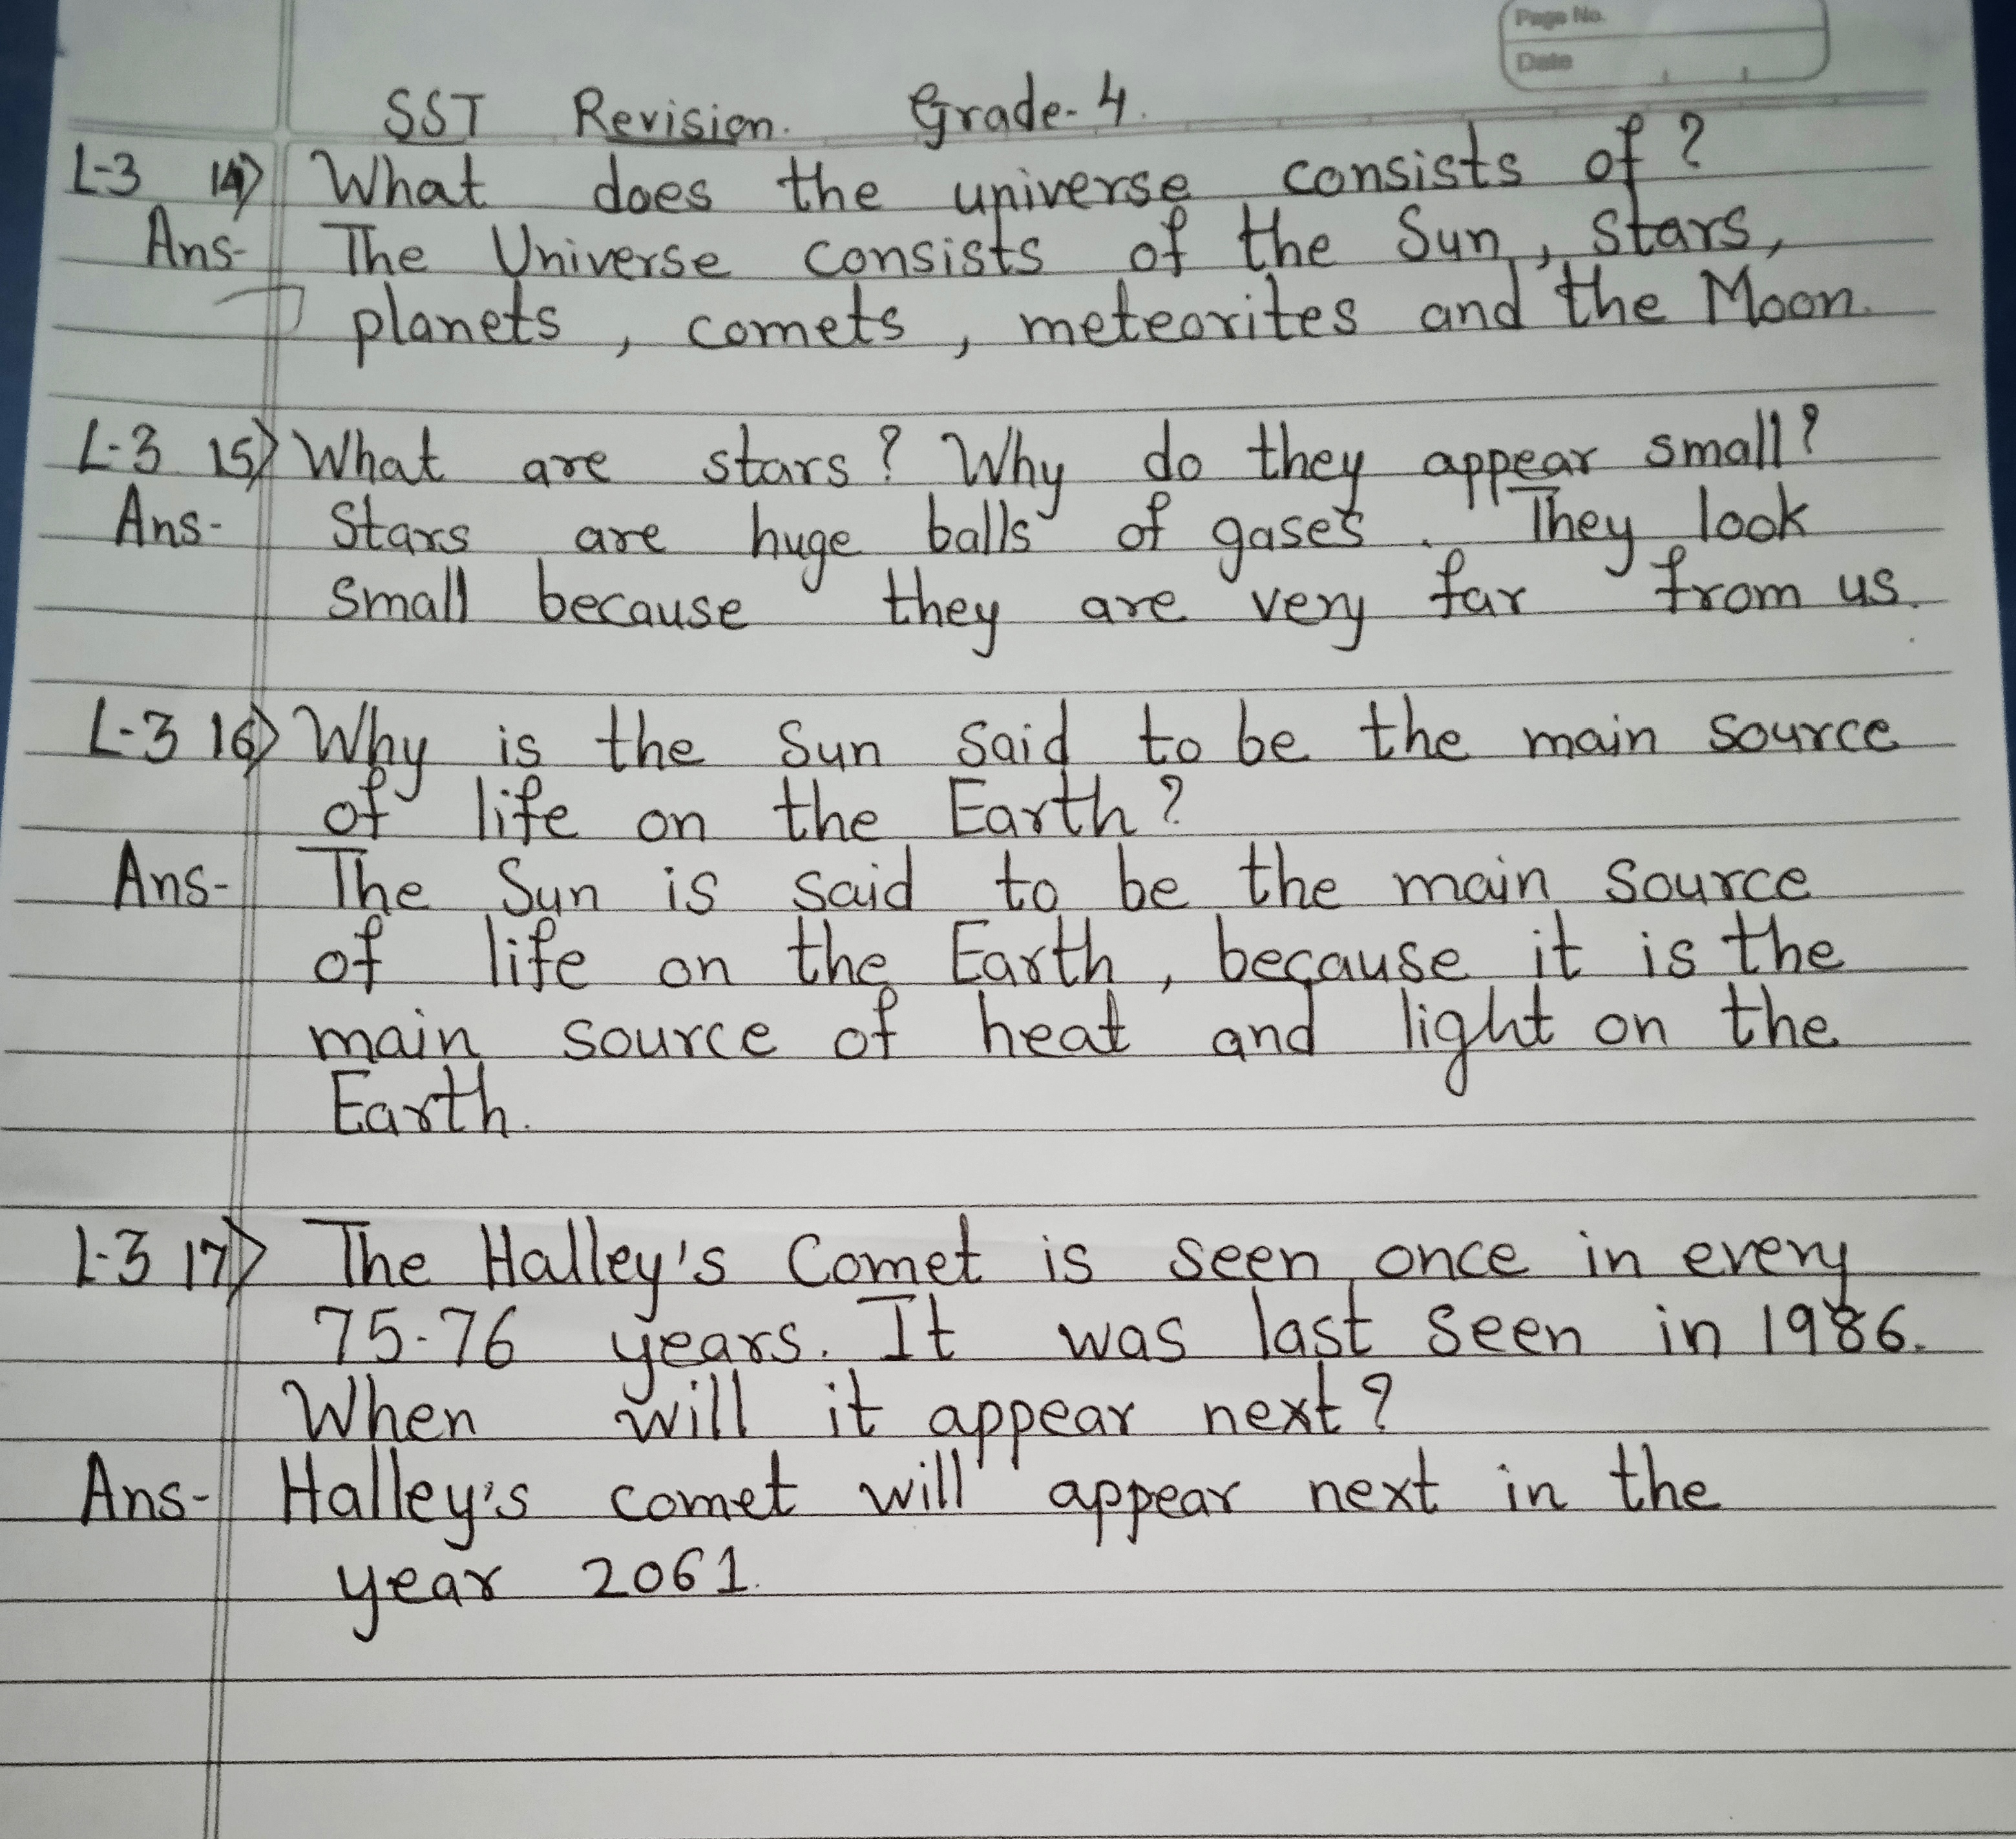 Page No.
Date
SST Revision. Grade-4.
L-3 14) What does the universe consists of?
Ans- The Universe consists of the Sun, stars,
planets, comets, meteorites and the Moon.
L-3 15) What are stars? Why do they appear small?
Ans- Stars are huge balls of gases. They look
small because they are very far from us.
L-3 16) Why is the Sun said to be the main source
of life on the Earth?
Ans- The Sun is said to be the main source
of life on the Earth, because it is the
main source of heat and light on the
Earth.
L-3 17) The Halley's Comet is seen once in every
75-76 years. It was last seen in 1986.
When will it appear next?
Ans- Halley's comet will appear next in the
year 2061.